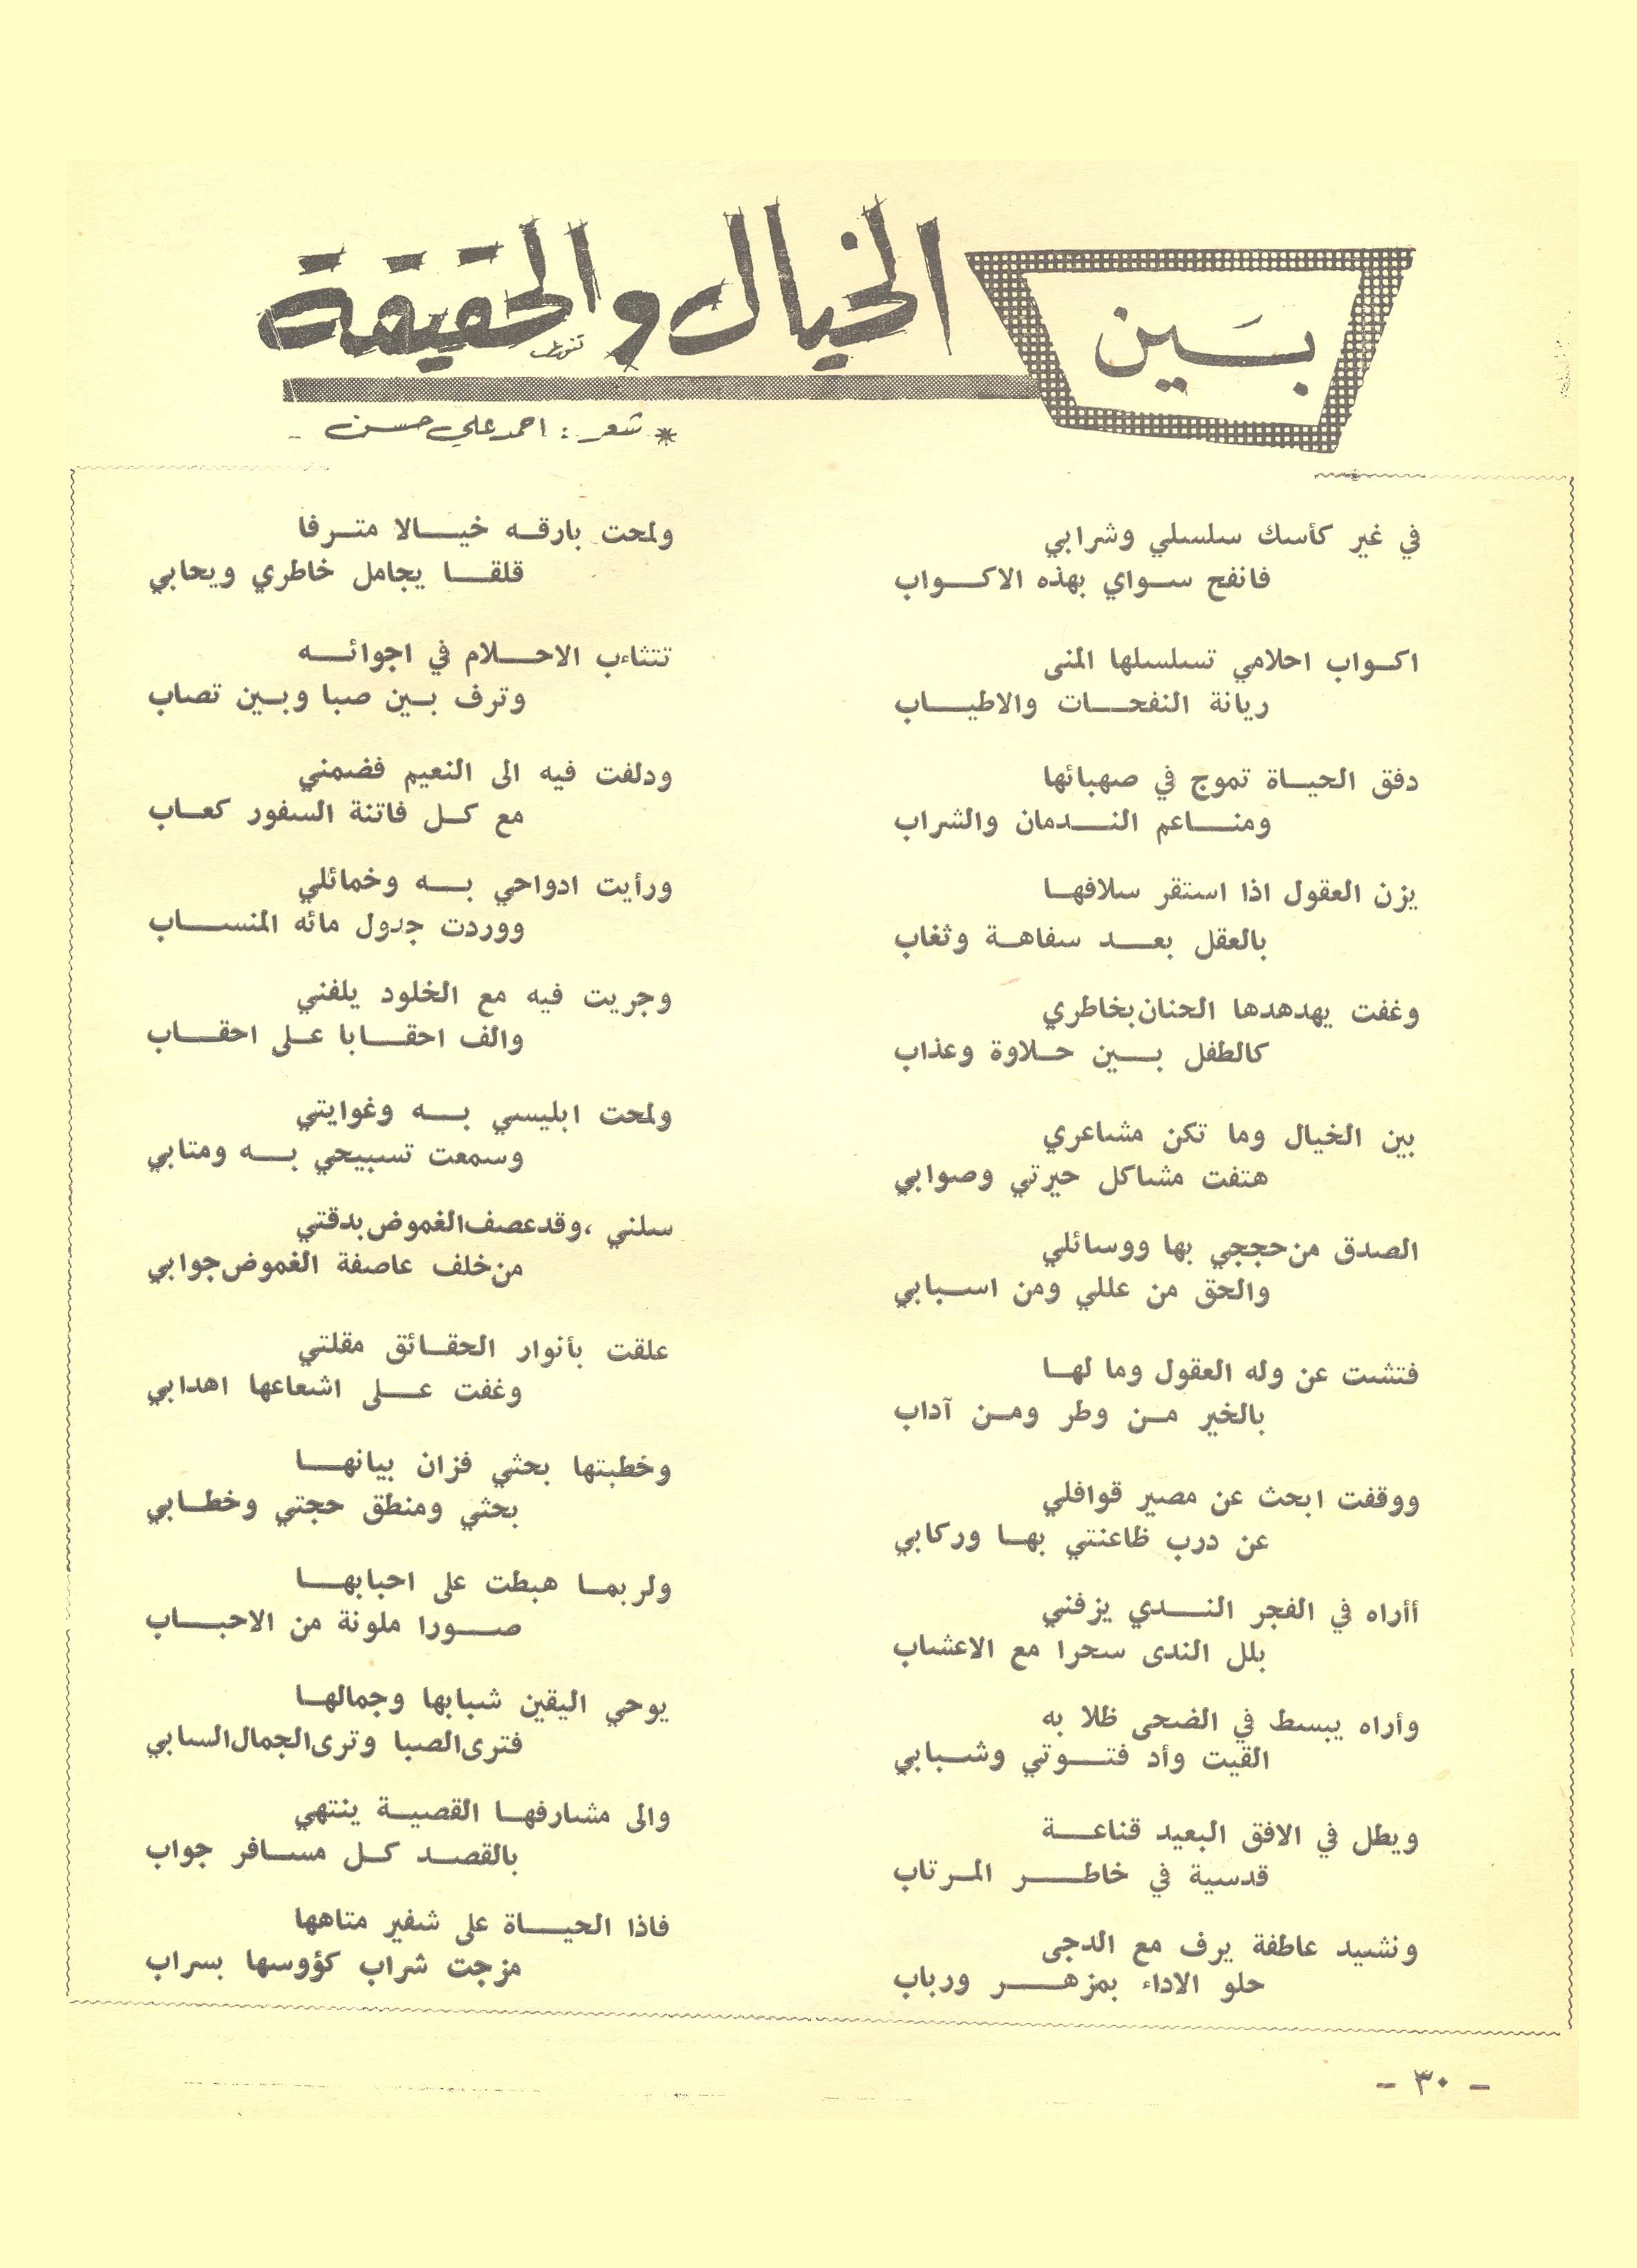 بين
الخيال والحقيقة
* شعر : احمد علي حسن -
في غير كأسك سلسلي وشرابي
فانفح سواي بهذه الاكواب
اكواب احلامي تسلسلها المنى
ريانة النفحات والاطياب
دفق الحياة تموج في صهبائها
ومناعم الندمان والشراب
يزن العقول اذا استقر سلافها
بالعقل بعد سفاهة وثغاب
وغفت يهدهدها الحنان بخاطري
كالطفل بين حلاوة وعذاب
بين الخيال وما تكن مشاعري
هتفت مشاكل حيرتي وصوابي
الصدق من حججي بها ووسائلي
والحق من عللي ومن اسبابي
فتشت عن وله العقول وما لها
بالخير من وطر ومن آداب
ووقفت ابحث عن مصير قوافلي
عن درب ظاعنتي بها وركابي
أأراه في الفجر الندي يزفني
بلل الندى سحرا مع الاعشاب
وأراه يبسط في الضحى ظلا به
القيت وأد فتوتي وشبابي
ويطل في الافق البعيد قناعة
قدسية في خاطر المرتاب
ونشيد عاطفة يرف مع الدجى
حلو الاداء بمزهر ورباب
ولمحت بارقه خيالا مترفا
قلقا يجامل خاطري ويحابي
تتثاءب الاحلام في اجوائه
وترف بين صبا وبين تصاب
ودلفت فيه الى النعيم فضمني
مع كل فاتنة السفور كعاب
ورأيت ادواحي به وخمائلي
ووردت جدول مائه المنساب
وجريت فيه مع الخلود يلفني
والف احقابا على احقاب
ولمحت ابليسي به وغوايتي
وسمعت تسبيحي به ومتابي
سلني ، وقد عصف الغموض بدقتي
من خلف عاصفة الغموض جوابي
علقت بأنوار الحقائق مقلتي
وغفت على اشعاعها اهدابي
وخطبتها بحثي فزان بيانها
بحثي ومنطق حجتي وخطابي
ولربما هبطت على احبابها
صورا ملونة من الاحباب
يوحي اليقين شبابها وجمالها
فترى الصبا وترى الجمال السابي
والى مشارفها القصية ينتهي
بالقصد كل مسافر جواب
فاذا الحياة على شفير متاهها
مزجت شراب كؤوسها بسراب
- ٣٠ -